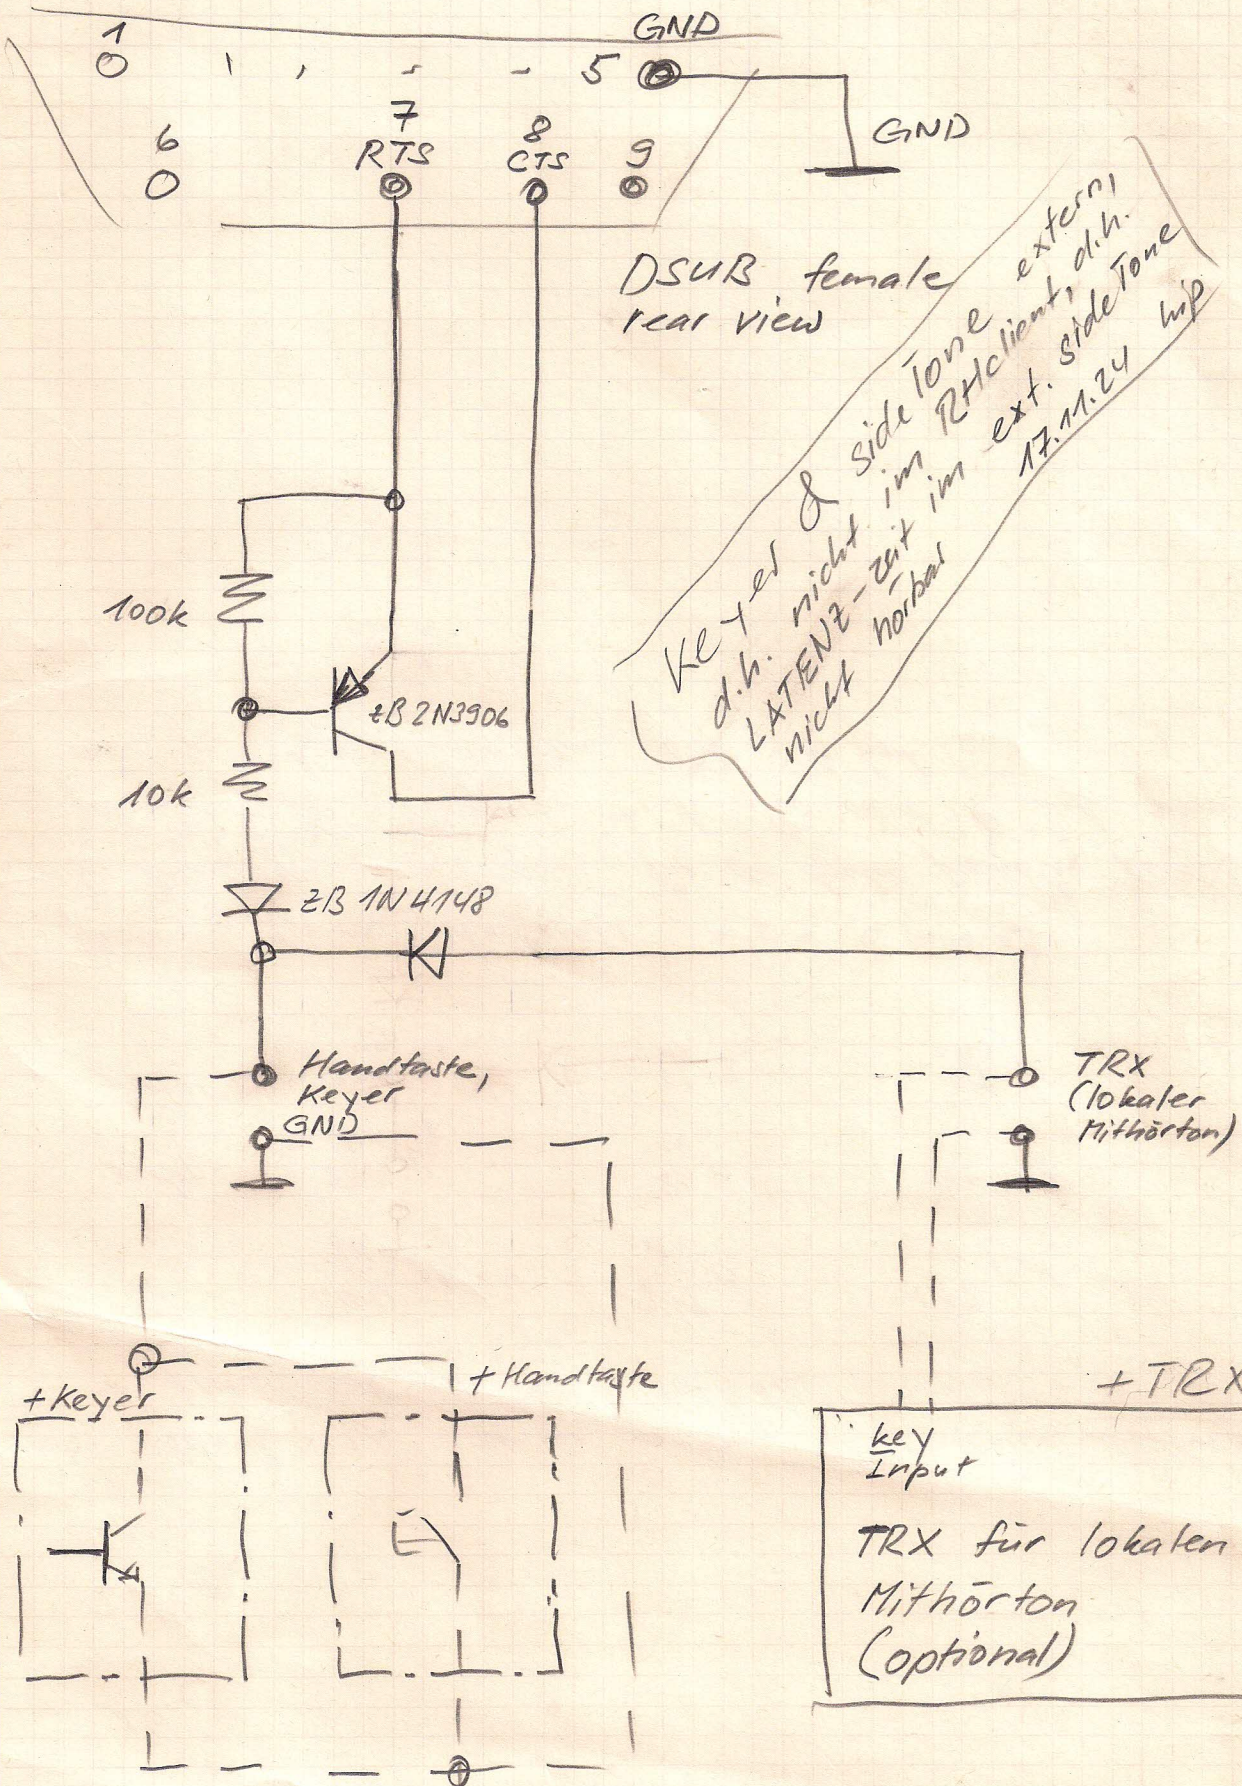 GND
1
5
7
8
6
RTS
CTS
9
GND
DSUB female
rear view
Keyer & sideTone extern,
d.h. nicht im RHclient, d.h.
LATENZ-zeit im ext. sideTone
nicht hörbar
17.11.24 hip
100k
zB 2N3906
10k
zB 1N4148
Handtaste,
Keyer
GND
TRX
(lokaler
Mithörton)
+Keyer
+Handtaste
+TRX
key
Input
TRX für lokalen
Mithörton
(optional)